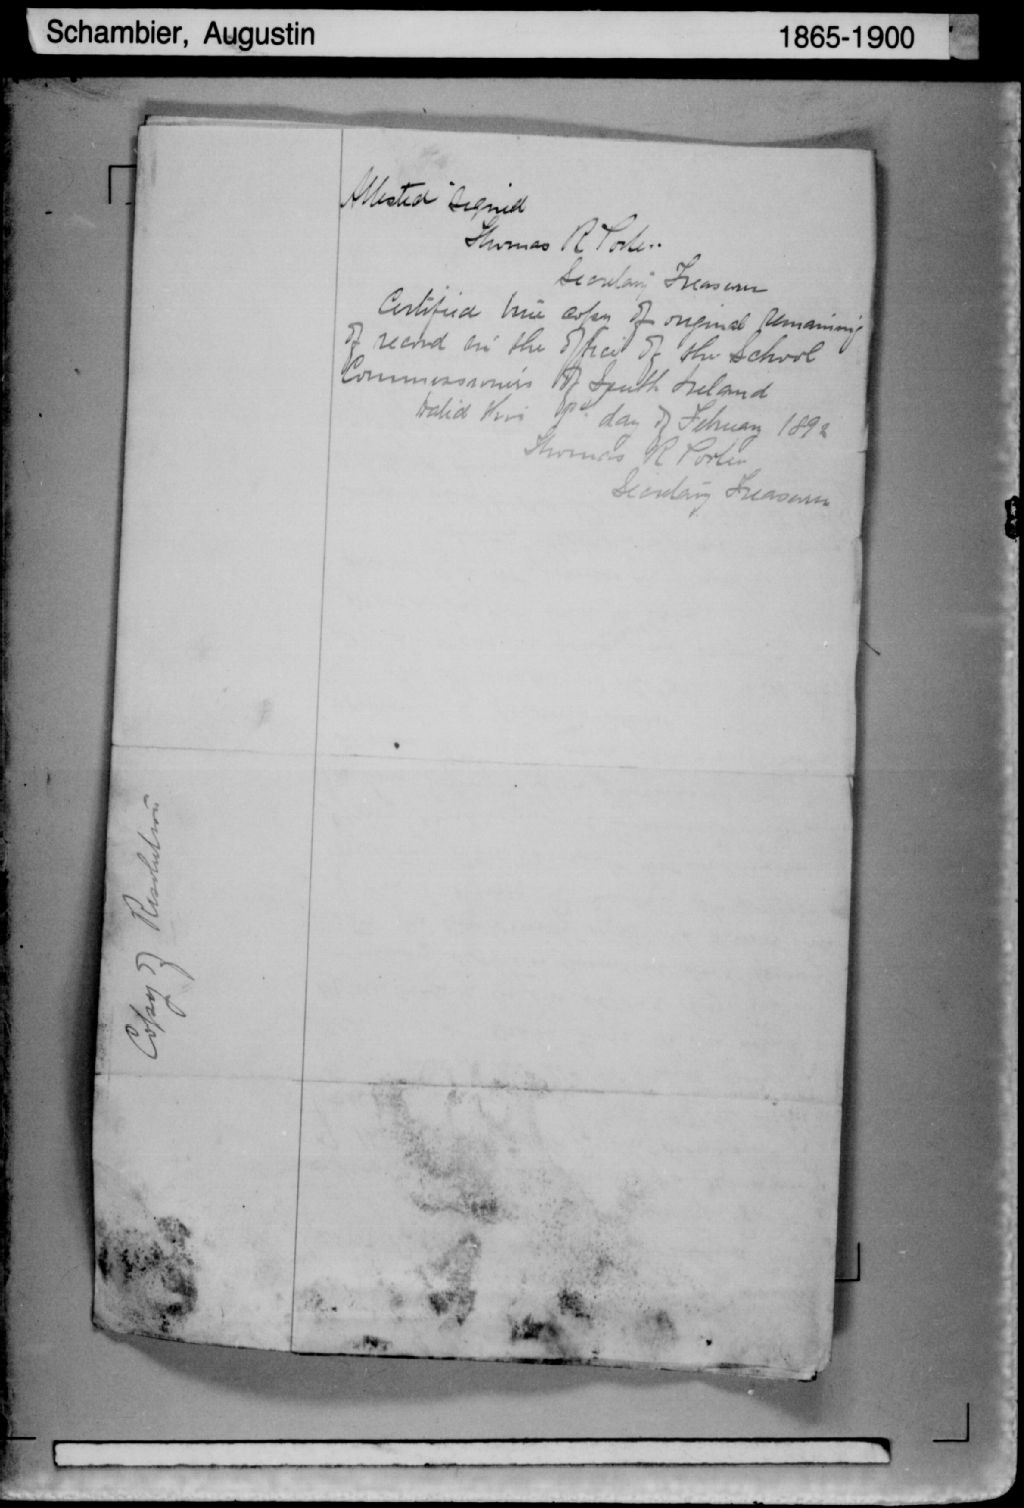 Schambier, Augustin 1865-1900
Attested signed
Thomas R Porter
Secretary Treasurer
Certified true copy of original remaining
of record in the office of the School
Commissioners of South Ireland
this day of February 1892
Thomas R Porter
Secretary Treasurer
Copy of Resolution